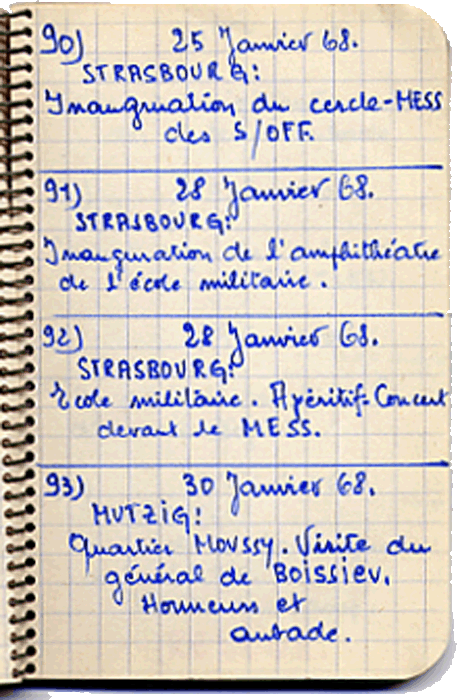 90) 25 Janvier 68.
STRASBOURG:
Inauguration du cercle-MESS
des S/OFF.
91) 28 Janvier 68.
STRASBOURG:
Inauguration de l'amphithéatre
de l'école militaire.
92) 28 Janvier 68.
STRASBOURG:
Ecole militaire. Apéritif-Concert
devant le MESS.
93) 30 Janvier 68.
MUTZIG:
Quartier MOUSSY. Visite du
général de BOISSIEU.
Honneurs et
aubade.